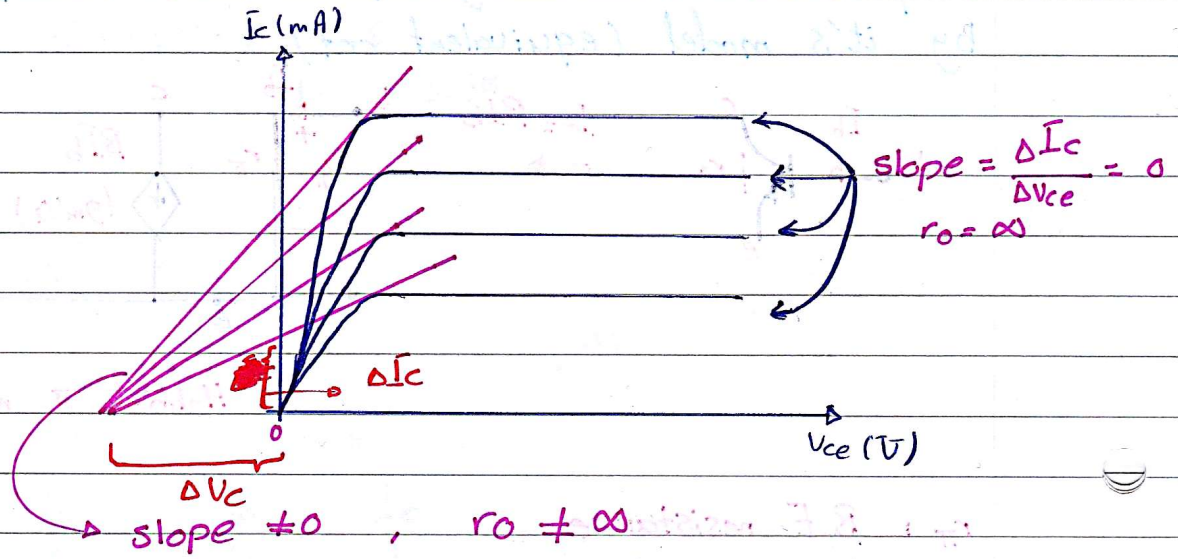 Ic (mA)
slope = ΔIc / ΔVce = 0
ro = ∞
ΔIc
0
Vce (V)
ΔVc
slope ≠ 0 , ro ≠ ∞